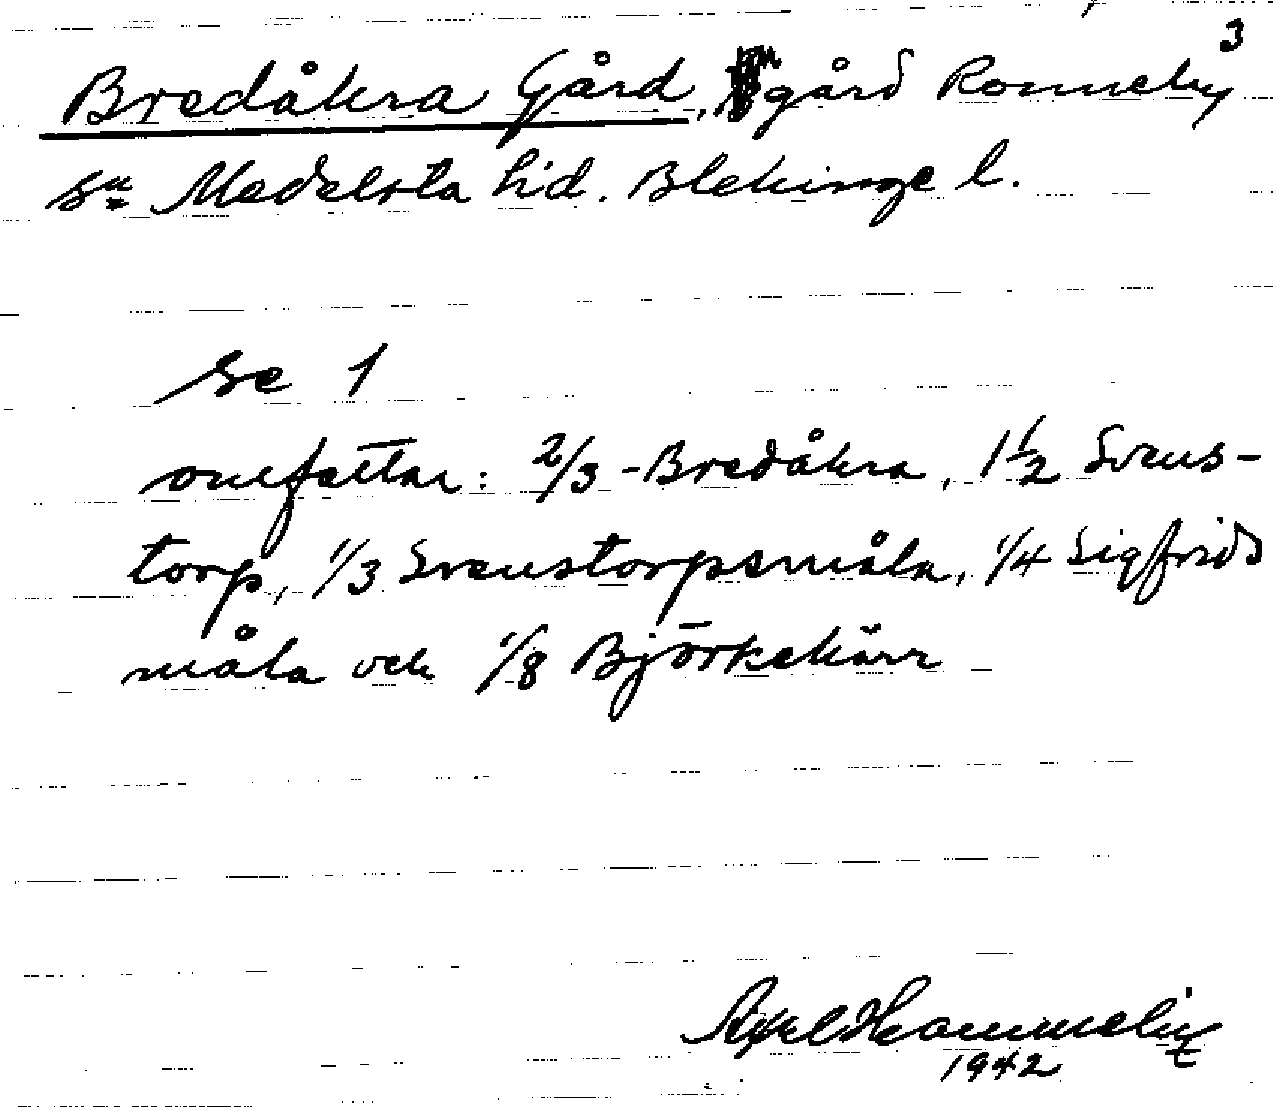 3
Bredåkra Gård, gård Ronneby
sn Medelsta hd. Blekinge l.
se 1
omfattar: 2/3 - Bredåkra, 1 1/2 Svens-
torp, 1/3 Svenstorpsmåla, 1/4 Sigfrids
måla och 1/8 Björkekärr
Axel
1942